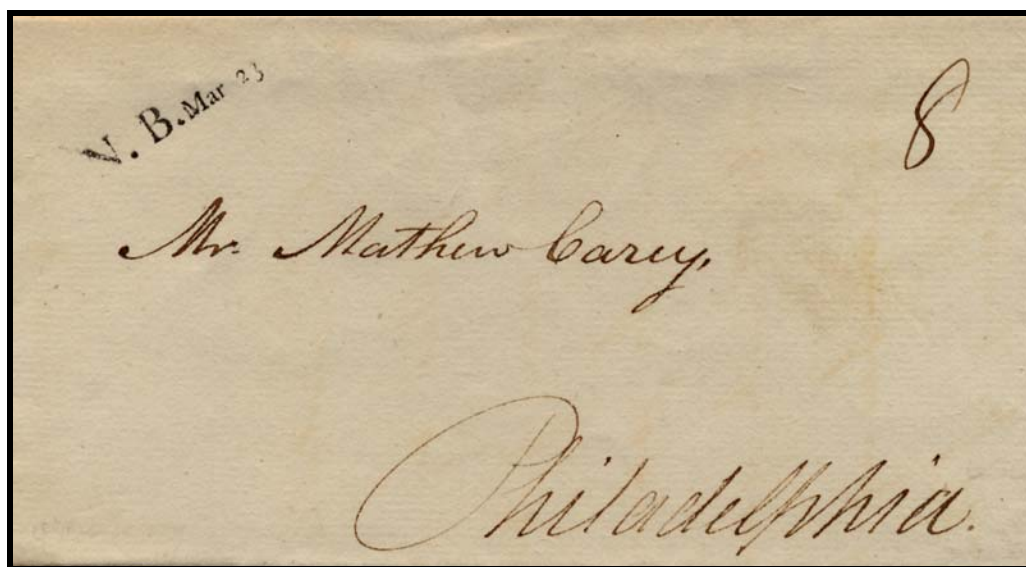 N. B. Mar 23
8
Mr. Mathew Carey,
Philadelphia.